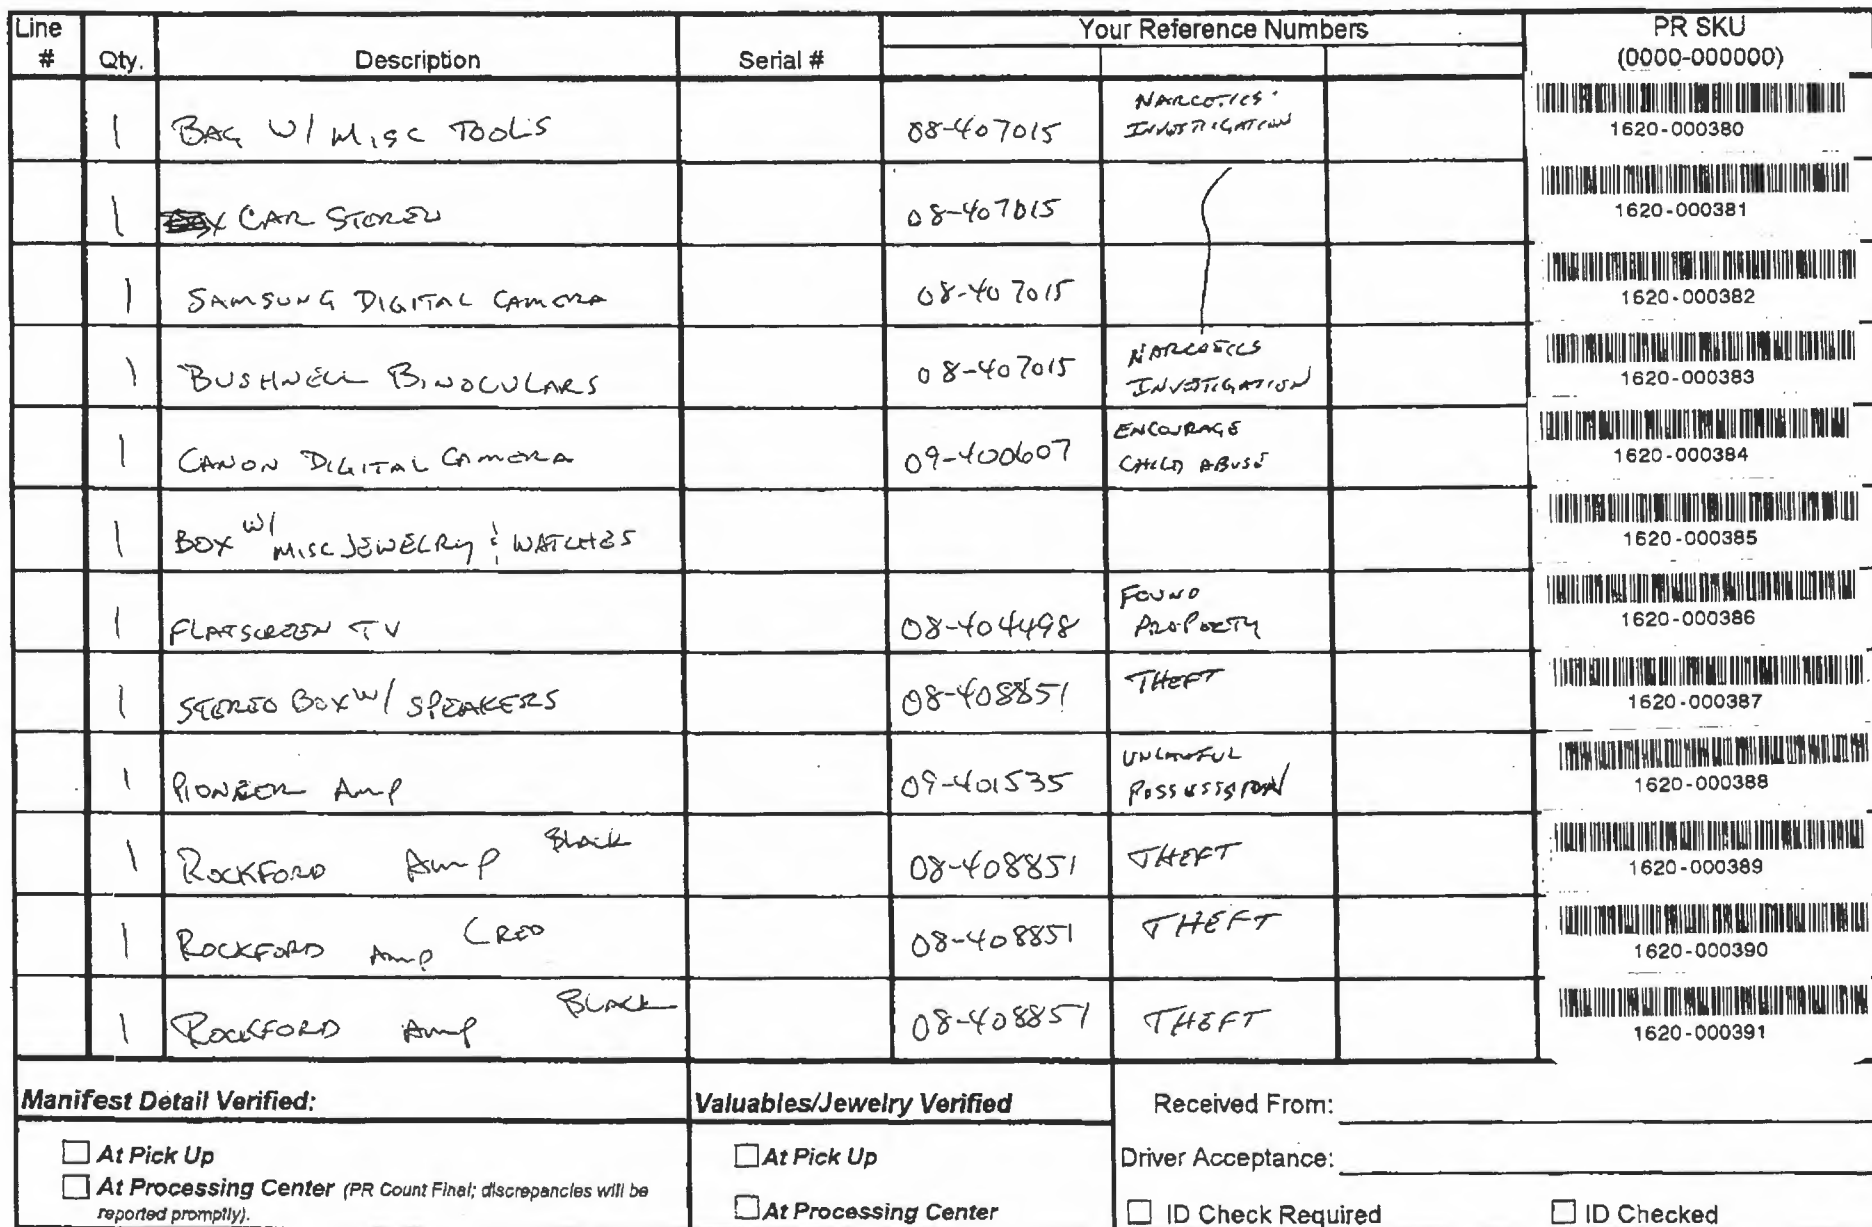 Line # Qty. Description Serial # Your Reference Numbers PR SKU (0000-000000)
1 BAG W/ MISC TOOLS 08-407015 NARCOTICS INVESTIGATION 1620-000380
1 CAR STEREO 08-407015 1620-000381
1 SAMSUNG DIGITAL CAMERA 08-407015 1620-000382
1 BUSHNELL BINOCULARS 08-407015 NARCOTICS INVESTIGATION 1620-000383
1 CANON DIGITAL CAMERA 09-400607 ENCOURAGE CHILD ABUSE 1620-000384
1 BOX W/ MISC JEWELRY & WATCHES 1620-000385
1 FLATSCREEN TV 08-404498 FOUND PROPERTY 1620-000386
1 STEREO BOX W/ SPEAKERS 08-408851 THEFT 1620-000387
1 PIONEER AMP 09-401535 UNLAWFUL POSSESSION 1620-000388
1 ROCKFORD AMP BLACK 08-408851 THEFT 1620-000389
1 ROCKFORD AMP RED 08-408851 THEFT 1620-000390
1 ROCKFORD AMP BLACK 08-408851 THEFT 1620-000391
Manifest Detail Verified: Valuables/Jewelry Verified Received From:
At Pick Up At Pick Up Driver Acceptance:
At Processing Center (PR Count Final; discrepancies will be reported promptly). At Processing Center ID Check Required ID Checked